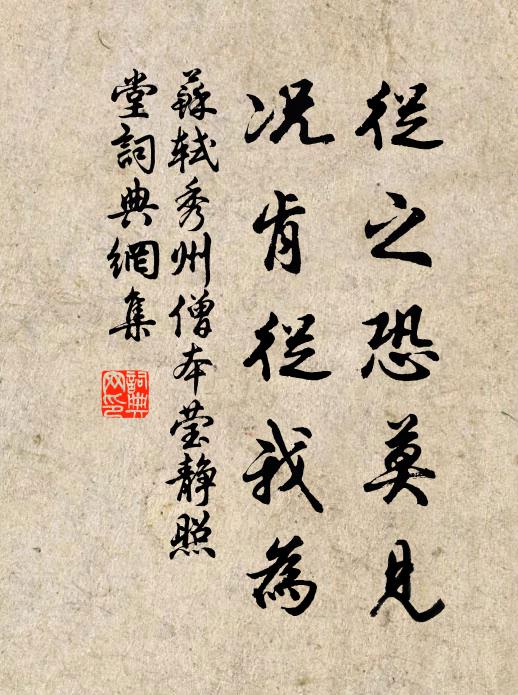 從之恐莫見
况肯從我為
蘇軾秀州僧本莹静照
堂詞典網集
詞典
网印